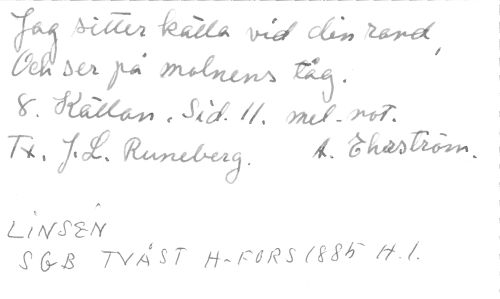 Jag sitter källa vid din rand,
Och ser på molnens tåg.
8. Källan. Sid. 11. mel-not.
Tx. J. L. Runeberg. A. Ehrström.
LINSÉN
SGB TVÅST H-FORS 1885 H.1.